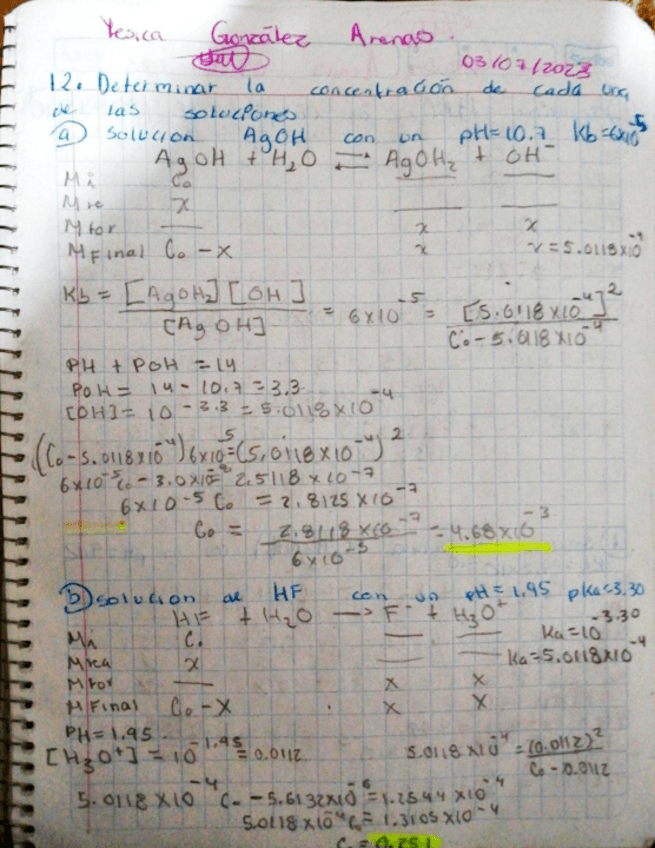 Yesica González Arenas.
03/07/2023
12. Determinar la concentración de cada una
de las soluciones
a) Solucion AgOH con un pH=10.7 Kb=6x10⁻⁵
AgOH + H₂O ⇌ AgOH₂ + OH⁻
Mi C₀ — —
Mre x — —
Mfor — x x
MFinal C₀-x x x=5.0118x10⁻⁴
Kb = [AgOH₂][OH] / [AgOH] = 6x10⁻⁵ = [5.0118x10⁻⁴]² / C₀-5.0118x10⁻⁴
PH + POH = 14
POH = 14-10.7 = 3.3
[OH] = 10⁻³·³ = 5.0118x10⁻⁴
(C₀-5.0118x10⁻⁴)6x10⁻⁵=(5.0118x10⁻⁴)²
6x10⁻⁵C₀ - 3.0x10⁻⁸= 2.5118x10⁻⁷
6x10⁻⁵ C₀ = 2.8125x10⁻⁷
C₀ = 2.8118x10⁻⁷ / 6x10⁻⁵ = 4.68x10⁻³
b) solucion de HF con un pH=1.95 pka=3.30
HF + H₂O → F⁻ + H₃O⁺
Ka=10⁻³·³⁰
Mi C. — —
Mrea x — — Ka=5.0118x10⁻⁴
Mfor — x x
MFinal C₀-x x x
PH=1.95
[H₃O⁺] = 10⁻¹·⁹⁵ = 0.0112 5.0118x10⁻⁴ = (0.0112)² / C₀-0.0112
5.0118x10⁻⁴ C₀ -5.6132x10⁻⁶=1.2544x10⁻⁴
5.0118x10⁻⁴C₀= 1.3105x10⁻⁴
C₀ = 0.251